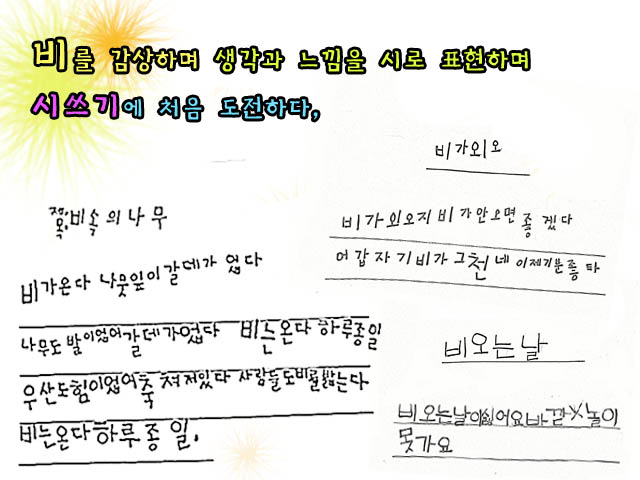 비를 감상하며 생각과 느낌을 시로 표현하며
시쓰기에 처음 도전하다,
제목:비속의나무
비가온다 나뭇잎이갈데가 없다
나무도 발이없어갈데가없다 비는온다 하루종일
우산도힘이없어축 쳐저있다 사람들도비를밟는다
비는온다하루종일.
비가외오
비가외오지 비가안으면좋겠다
어갑자기비가그천네 이제기분좋타
비오는날
비오는날이싫어요바깥놀이
못가요